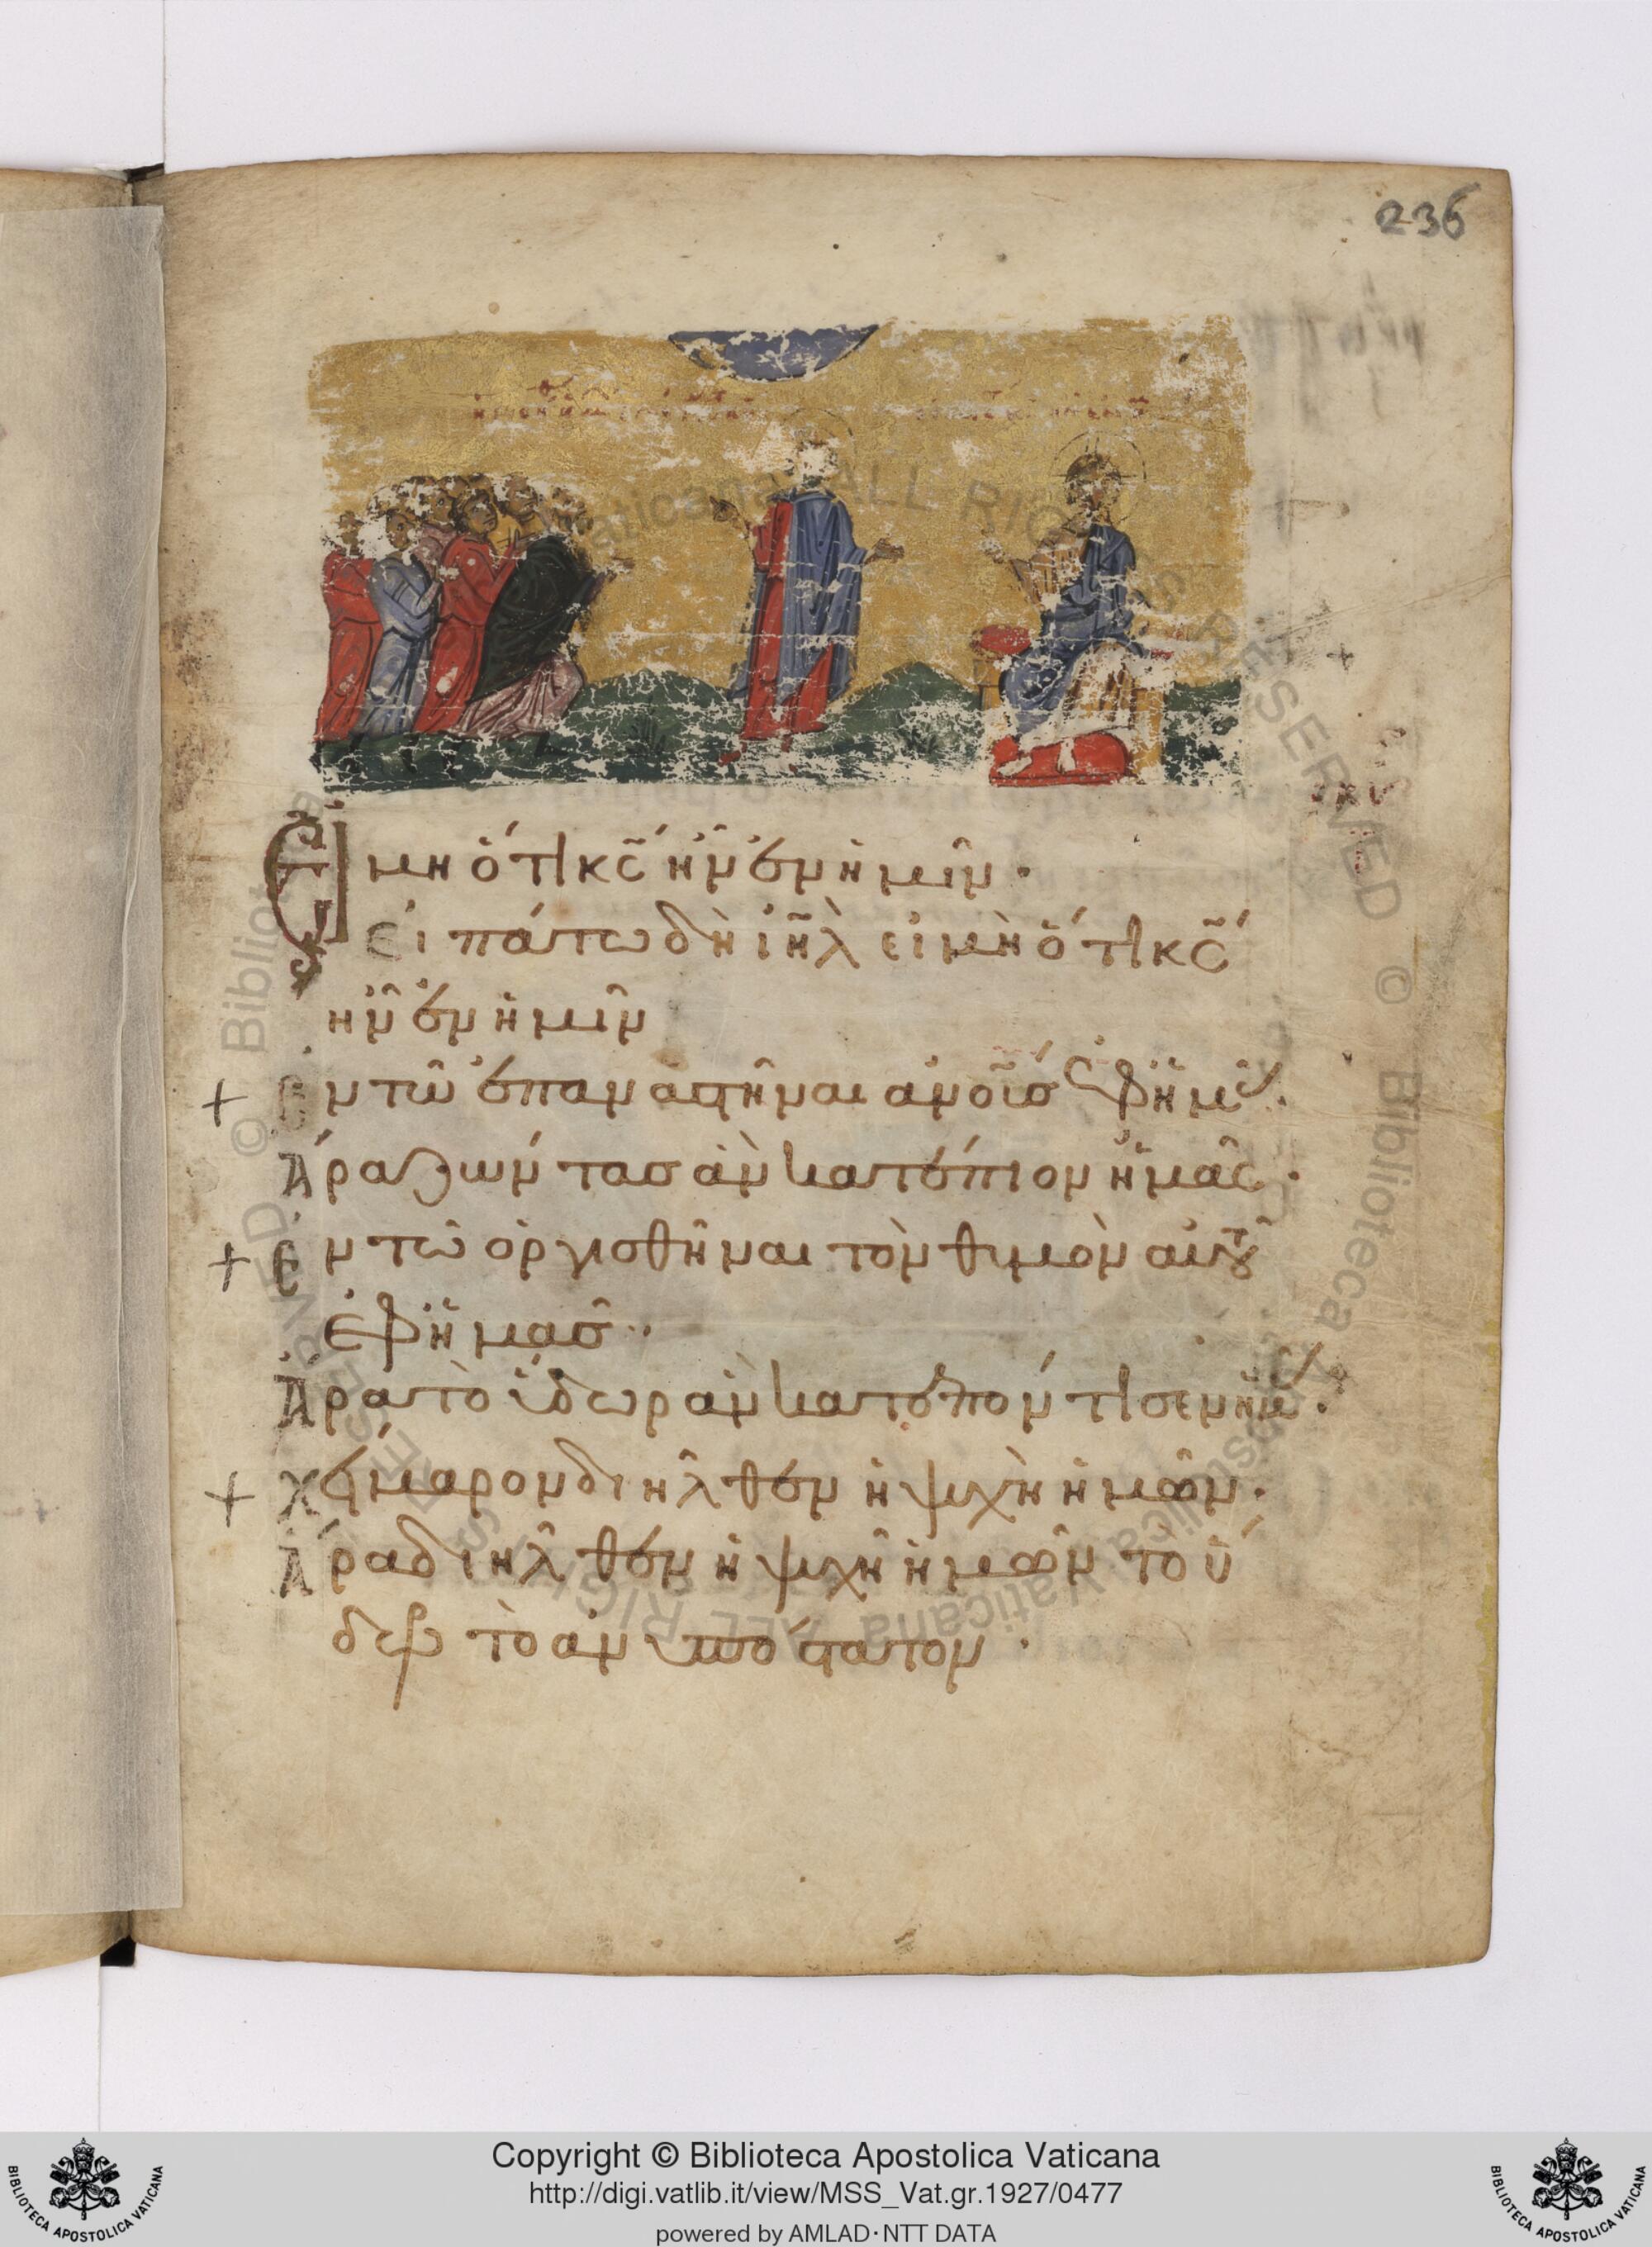 236
Εἰ μὴ ὅτι κ̅ς̅ ἦν ἐν ἡμῖν·
εἰπάτω δὴ ι̅η̅λ̅ εἰ μὴ ὅτι κ̅ς̅
ἦν ἐν ἡμῖν
+ ἐν τῷ ἐπαναστῆναι ἀν̅ο̅υ̅ς̅ ἐφ' ἡμᾶς·
Ἄρα ζῶντας ἂν κατέπιον ἡμᾶς·
+ ἐν τῷ ὀργισθῆναι τὸν θυμὸν αὐτοῦ
ἐφ' ἡμᾶς·
Ἄρα τὸ ὕδωρ ἂν κατεπόντισεν ἡμᾶς·
+ χείμαρον διῆλθεν ἡ ψυχὴ ἡμῶν·
Ἄρα διῆλθεν ἡ ψυχὴ ἡμῶν τὸ ὕ
δωρ τὸ ἀνυπόστατον·
Copyright © Biblioteca Apostolica Vaticana
http://digi.vatlib.it/view/MSS_Vat.gr.1927/0477
powered by AMLAD·NTT DATA
BIBLIOTECA APOSTOLICA VATICANA
BIBLIOTECA APOSTOLICA VATICANA